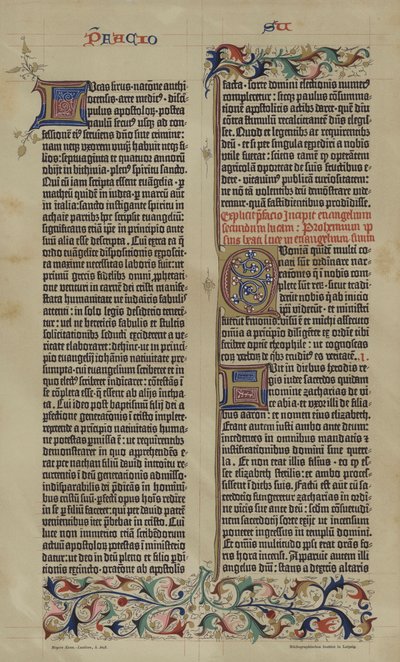 PREFACIO
SU
Lucas sirus · natiõne anthi
ocensis · arte medic⁹ · disci-
pulus apostoloꝝ · postea
paulũ secut⁹ usqꝫ ad con-
fessionẽ ei⁹ serviens dño sine crimine:
nam neqꝫ uxorem unqᷓ habuit neqꝫ fi-
lios: septuaginta et quatuor annoꝝ
obiit in bithinia · plen⁹ spiritu sancto.
Qui cũ iam scripta essent euãgelia · ꝑ
matheũ quidẽ in iudea · ꝑ marcũ aut̃
in italia: sancto instigante spiritu in
achaie partib⁹ hoc scripsit euangeliũ:
significans etiã ip̃e in principio ante
suũ alia esse descripta. Cui extra ea q̃
ordo euãgelice dispositionis exposcit
ea maxime necessitas laboris fuit: ut
primũ grecis fidelib⁹ omni ꝓphetati-
one venturi in carnẽ dei cristi manife-
stata humanitate ne iudaicis fabulis
attenti: in solo legis desiderio tenerẽ-
tur: vel ne hereticis fabulis et stultis
sollicitationib⁹ seducti excideret a ve-
ritate elaboraret: dehinc · ut in princi-
pio euangelij iohãnis nativitate pre-
sumpta · cui euangeliũ scriberet et in
quo elect⁹ scriberet indicaret: cõtestãs ĩ
se cõpleta esse · q̃ essent ab aliis incepta
ta. Cui ideo post baptismũ filij dei a
ꝑfectione generationis ĩ cristo implete ·
repetende a principio nativitatis huma-
ne potestas ꝑmissa ẽ: ut requirentib⁹
demonstraret in quo apprehendẽs e-
rat per nathan filiũ david introitu re-
currentis ĩ deũ generationis admisso ·
indisparabilis dei p̃dicãs in homini-
bus cristũ suũ · ꝑfecti opus hoĩs redire
in se ꝑ filiũ faceret: qui per david patrẽ
venientibus iter p̃bebat in cristo. Cui
luce non immerito etiã scribẽdorum
actuũ apostoloꝝ potestas ĩ ministerio
datur: ut deo in deũ pleno et filio ꝑdi
tionis extincto · oratiõne ab apostolis
facta · sorte domini electionis numer⁹
compleretur: sicqꝫ paulus cõsumma-
tionẽ apostolicis actib⁹ daret · quẽ diu
cõtra stimulũ recalcitrantẽ dñs elegis-
set. Quod et legentib⁹ ac requirentib⁹
deũ · et si per singula expediri a nobis
utile fuerat: sciens tamẽ q̃ operantem
agricolã oporteat de suis fructibus e-
dere · vitavim⁹ publicã curiositatem:
ne nõ tã volentib⁹ deũ demõstrare vide-
remur · quã fastidientibus prodidisse.
Explicit p̃facio Incipit euangelium
secundum lucam: Prohemium ip
sius beati luce in euangelium suum
Quoniã quidẽ multi co-
nati sũt ordinare nar-
rationes q̃ ĩ nobis com-
plete sũt reꝝ · sicut tradi-
derũt nobis q̃ ab inicio
ip̃i viderũt · et ministri
fuerũt sermonis: visũ ẽ et michi assecuto
omnia a principio diligẽter ex ordĩe tibi
scribere optime theophile: ut cognoscas
eoꝝ verboꝝ de q̃b⁹ erudit⁹ es veritatẽ. I.
Fuit in diebus herodis re-
gis iude sacerdos quidam
nomine zacharias de vi-
ce abia · et uxor illi de filia-
bus aaron: et nomen eius elizabeth.
Erant autem iusti ambo ante deum:
incedentes in omnibus mandatis et
iustificationibus domini sine quere-
la. Et non erat illis filius · eo q̃ es-
set elizabeth sterilis: et ambo proces-
sissent ĩ dieb⁹ suis. Factũ est aut̃ cũ sa-
cerdotio fungeretur zacharias in ordi-
ne vicis sue ante deũ: scd̃m cõsuetudi-
nem sacerdotij sorte exijt ut incensum
poneret ingressus in templũ domini.
Et omĩs multitudo pp̃li erat orãs fo-
ris hora incensi. Apparuit autem illi
angelus dñi: stans a dextris altaris
Meyers Konv.-Lexikon, 5. Aufl.
Bibliographisches Institut in Leipzig.